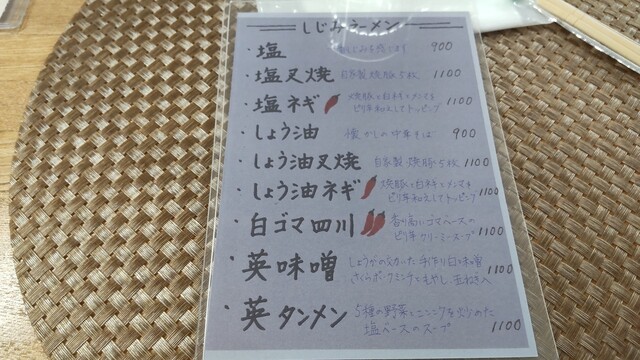 しじみラーメン
・塩 900
・塩叉焼 自家製焼豚5枚 1100
・塩ネギ 焼豚と白料とメンマを 1100
ピリ辛和えしてトッピング
・しょう油 懐かしの中華そば 900
・しょう油叉焼 自家製焼豚5枚 1100
・しょう油ネギ 焼豚と白料とメンマを 1100
ピリ辛和えしてトッピング
・白ゴマ四川 香り高いゴマベースの 1100
ピリ辛クリーミースープ
・英味噌 しょうがの効いた手作り白味噌 1100
さくらポークミンチともやし 玉ねぎ入
・英タンメン 5種の野菜とニンニクを炒めた
塩ベースのスープ 1100